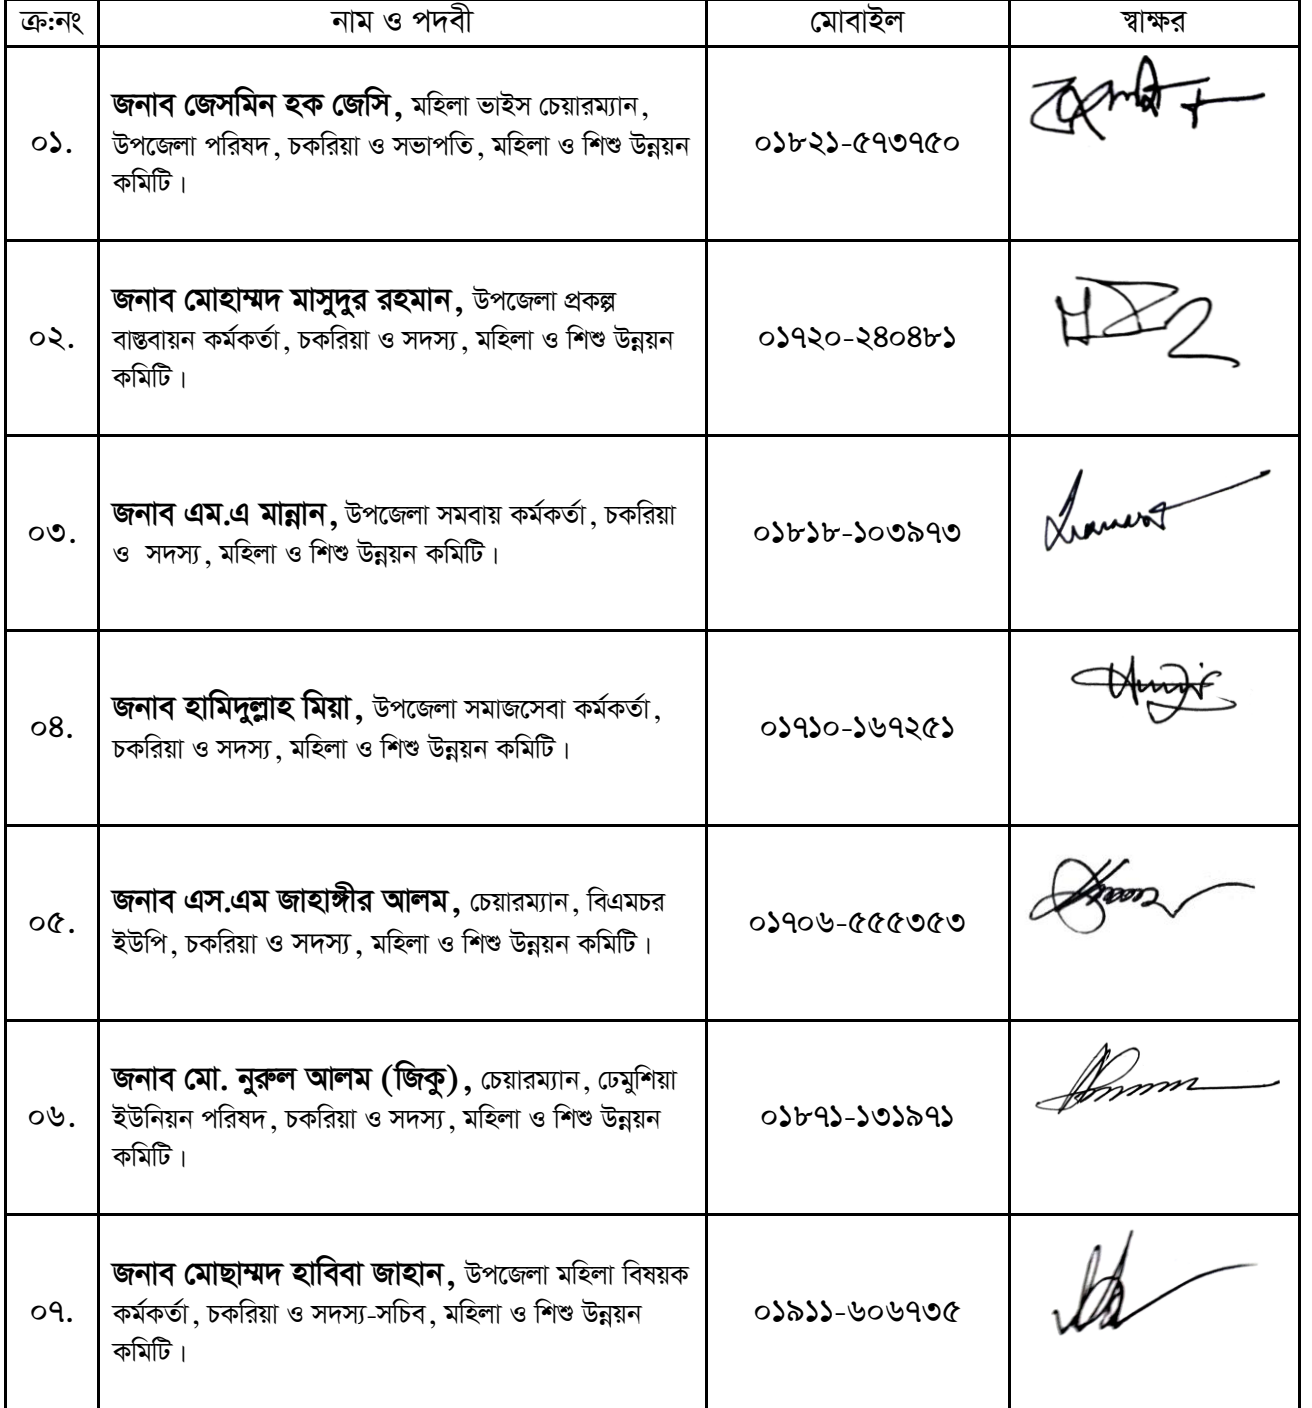 ক্র:নং নাম ও পদবী মোবাইল স্বাক্ষর
০১. জনাব জেসমিন হক জেসি, মহিলা ভাইস চেয়ারম্যান,
উপজেলা পরিষদ, চকরিয়া ও সভাপতি, মহিলা ও শিশু উন্নয়ন
কমিটি।
০১৮২১-৫৭৩৭৫০
০২. জনাব মোহাম্মদ মাসুদুর রহমান, উপজেলা প্রকল্প
বাস্তবায়ন কর্মকর্তা, চকরিয়া ও সদস্য, মহিলা ও শিশু উন্নয়ন
কমিটি।
০১৭২০-২৪০৪৮১
০৩. জনাব এম.এ মান্নান, উপজেলা সমবায় কর্মকর্তা, চকরিয়া
ও সদস্য, মহিলা ও শিশু উন্নয়ন কমিটি।
০১৮১৮-১০৩৯৭৩
০৪. জনাব হামিদুল্লাহ মিয়া, উপজেলা সমাজসেবা কর্মকর্তা,
চকরিয়া ও সদস্য, মহিলা ও শিশু উন্নয়ন কমিটি।
০১৭১০-১৬৭২৫১
০৫. জনাব এস.এম জাহাঙ্গীর আলম, চেয়ারম্যান, বিএমচর
ইউপি, চকরিয়া ও সদস্য, মহিলা ও শিশু উন্নয়ন কমিটি।
০১৭০৬-৫৫৫৩৫৩
০৬. জনাব মো. নুরুল আলম (জিকু), চেয়ারম্যান, ঢেমুশিয়া
ইউনিয়ন পরিষদ, চকরিয়া ও সদস্য, মহিলা ও শিশু উন্নয়ন
কমিটি।
০১৮৭১-১৩১৯৭১
০৭. জনাব মোছাম্মদ হাবিবা জাহান, উপজেলা মহিলা বিষয়ক
কর্মকর্তা, চকরিয়া ও সদস্য-সচিব, মহিলা ও শিশু উন্নয়ন
কমিটি।
০১৯১১-৬০৬৭৩৫